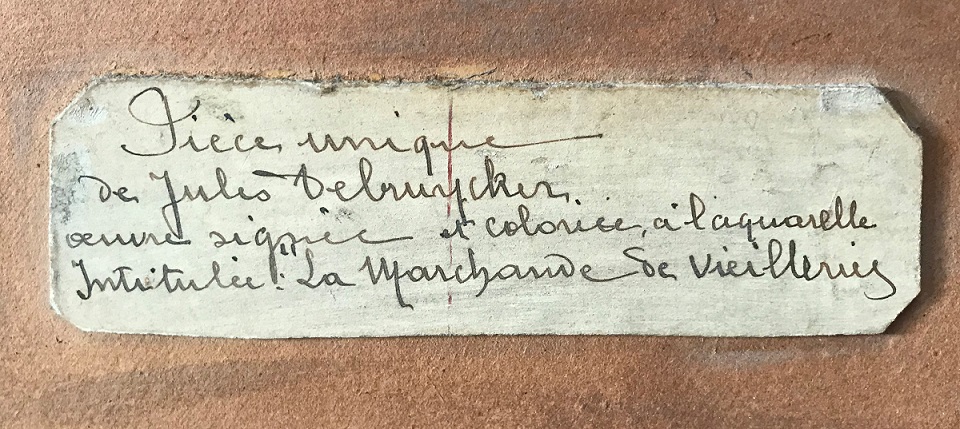 Pièce unique
de Jules Debruycker
œuvre signée et coloriée, à l'aquarelle
Intitulée: "La Marchande de Vieilleries